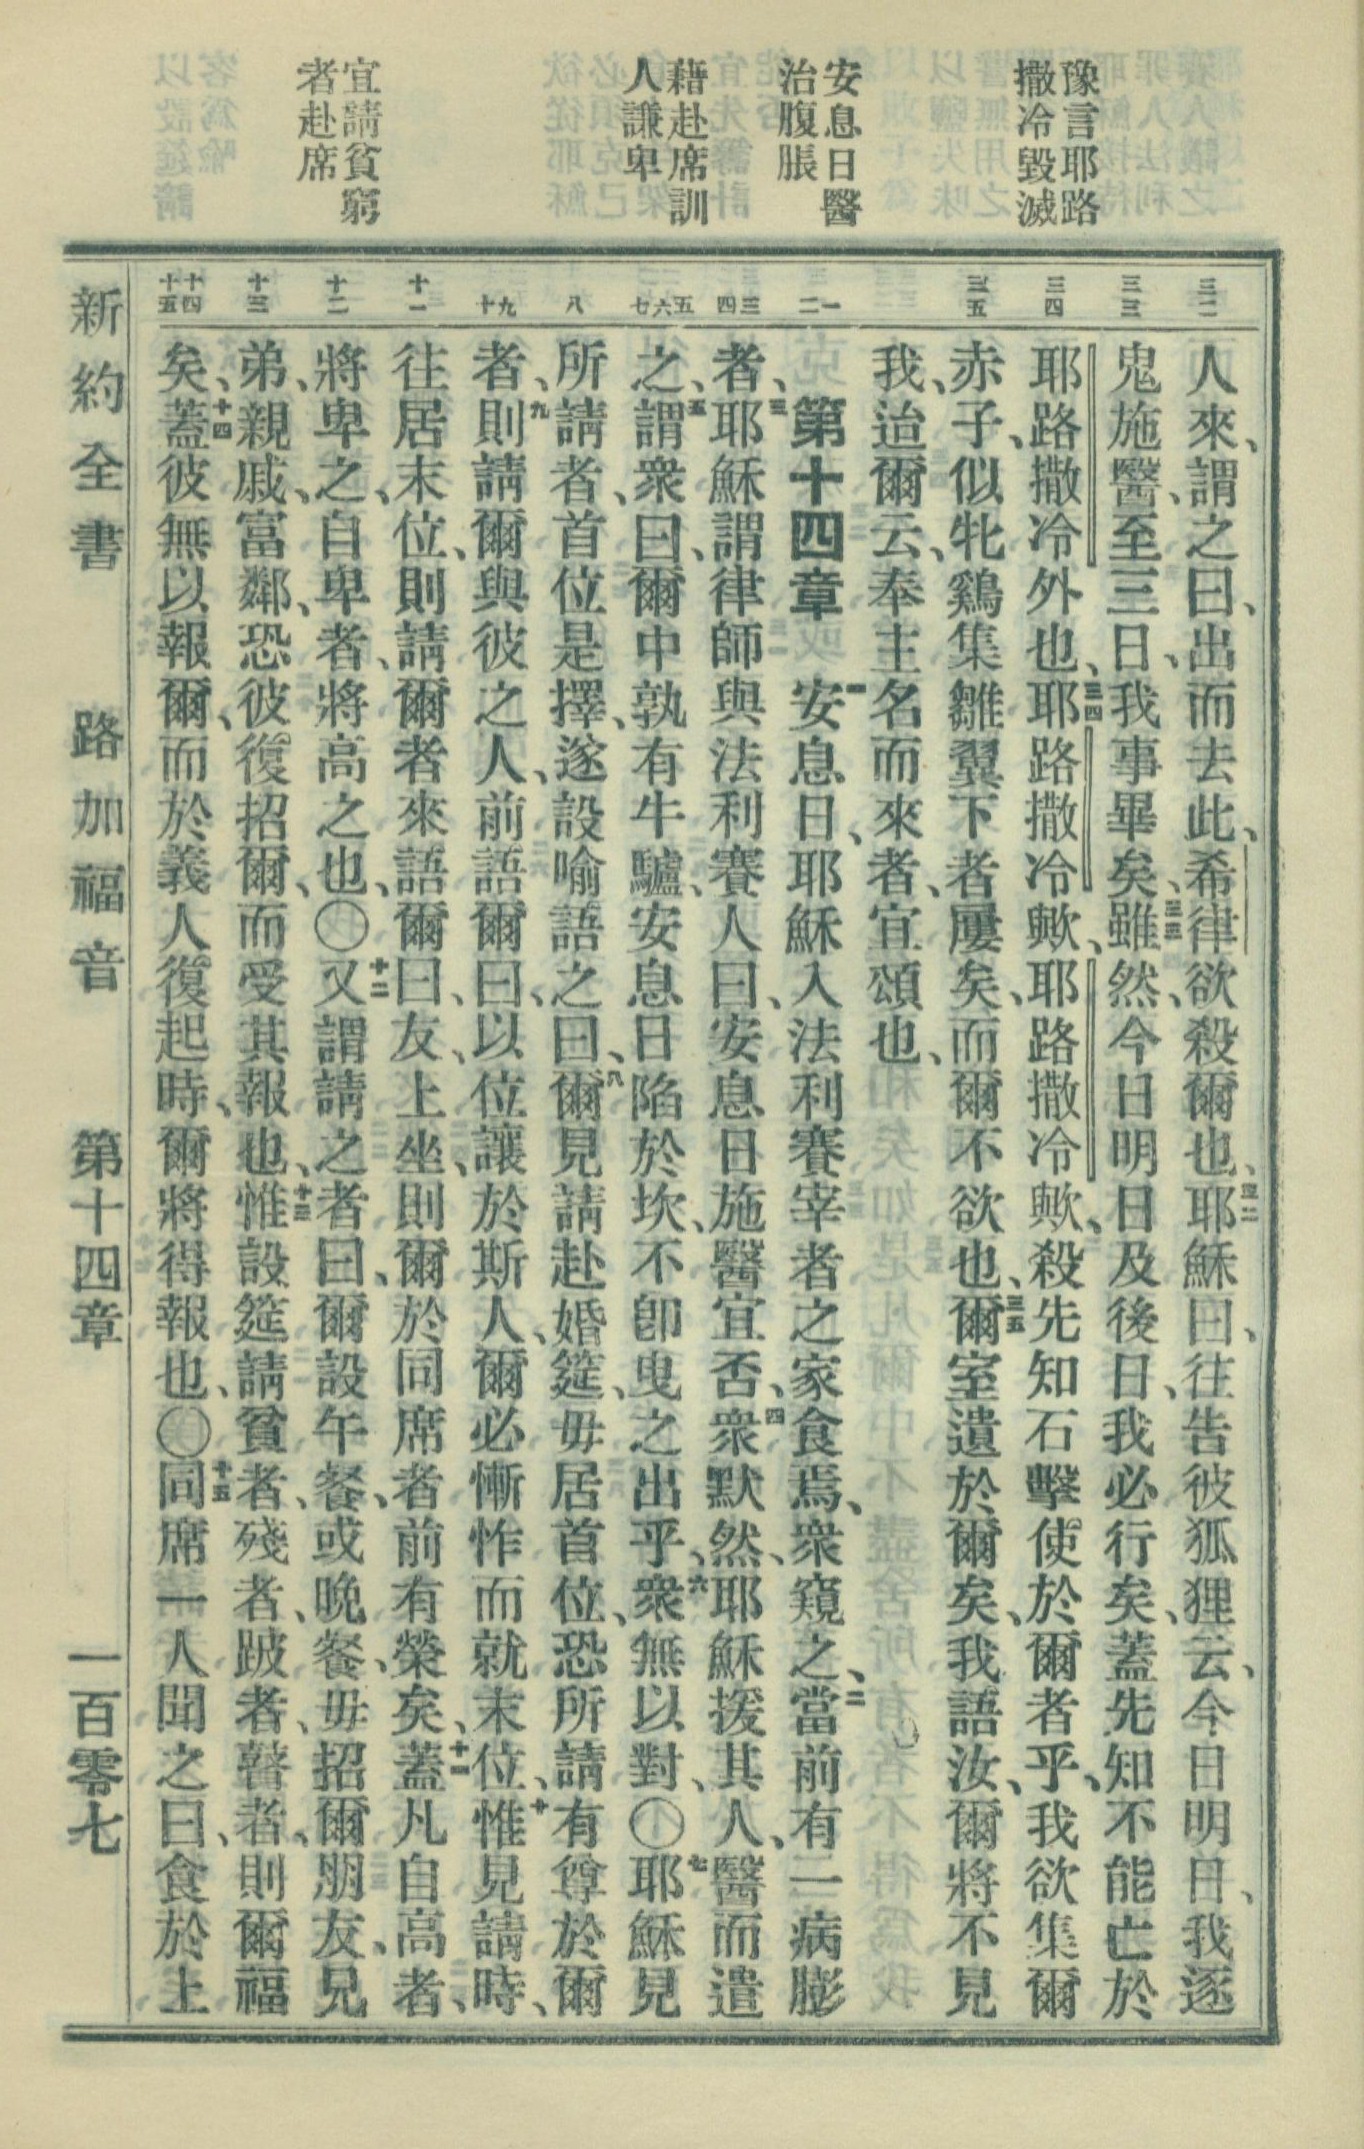 豫言耶路
撒冷毀滅
安息日醫
治腹脹
藉赴席訓
人謙卑
宜請貧窮
者赴席
三二
三三
三四
三五
一二
三四
五六七
八
九十
十一
十二
十三
十四十五
人來、謂之曰、出而去此、希律欲殺爾也、三二耶穌曰、往告彼狐狸云、今日明日、我逐
鬼施醫、至三日、我事畢矣、三三雖然、今日明日及後日、我必行矣、蓋先知不能亡於
耶路撒冷外也、三四耶路撒冷歟、耶路撒冷歟、殺先知石擊使於爾者乎、我欲集爾
赤子、似牝鷄集雛翼下者屢矣、而爾不欲也、三五爾室遺於爾矣、我語汝、爾將不見
我、迨爾云、奉主名而來者、宜頌也、
第十四章 一安息日、耶穌入法利賽宰者之家食焉、衆窺之、二當前有一病膨
者、三耶穌謂律師與法利賽人曰、安息日施醫宜否、四衆默然、耶穌援其人、醫而遣
之、五謂衆曰、爾中孰有牛驢、安息日陷於坎、不卽曳之出乎、六衆無以對、〇七耶穌見
所請者、首位是擇、遂設喻語之曰、八爾見請赴婚筵、毋居首位、恐所請有尊於爾
者、九則請爾與彼之人、前語爾曰、以位讓於斯人、爾必慚怍而就末位、十惟見請時、
往居末位、則請爾者來語爾曰、友、上坐、則爾於同席者前有榮矣、十一蓋凡自高者、
將卑之、自卑者、將高之也、〇十二又謂請之者曰、爾設午餐、或晚餐、毋招爾朋友、兄
弟、親戚、富鄰、恐彼復招爾、而受其報也、十三惟設筵請貧者、殘者、跛者、瞽者、則爾福
矣、十四蓋彼無以報爾、而於義人復起時、爾將得報也、〇十五同席一人聞之曰、食於上
新約全書 路加福音 第十四章 一百零七